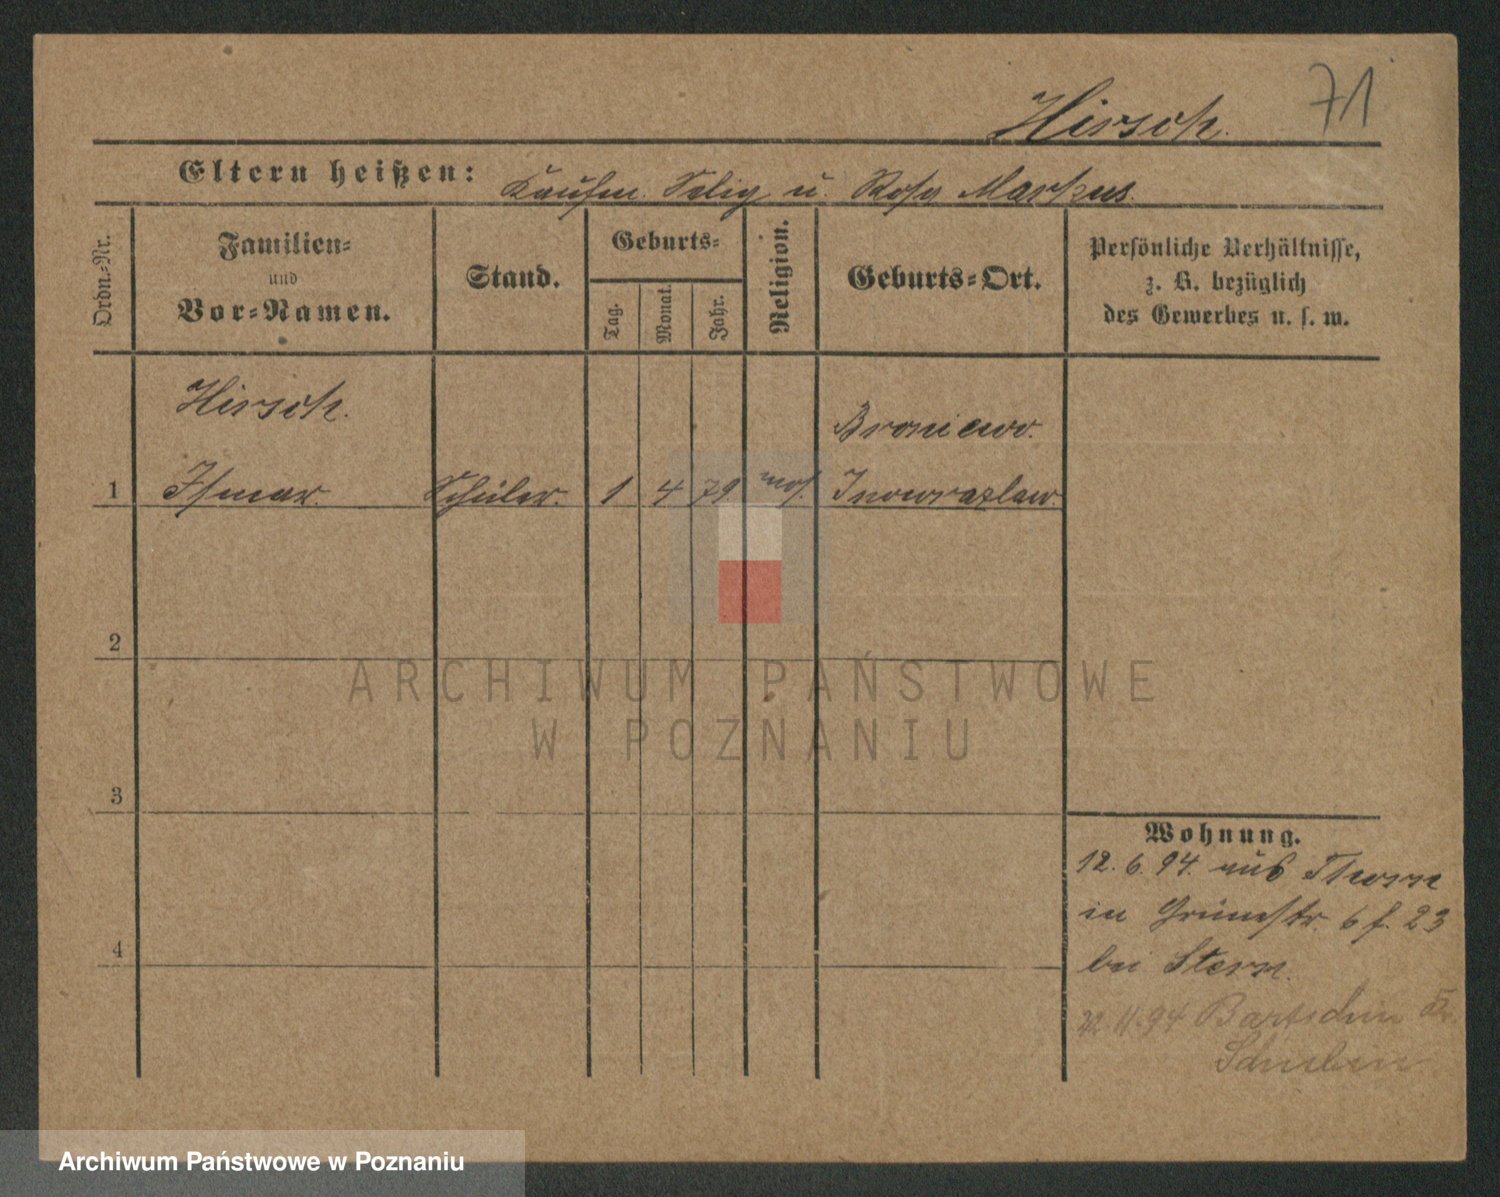 71
Hirsch.
Eltern heißen: Kaufm. Selig u. Rosa Markus.
Ordn.-Nr.
Familien-
und
Vor-Namen.
Stand.
Geburts-
Tag.
Monat.
Jahr.
Religion.
Geburts-Ort.
Persönliche Verhältnisse,
z. B. bezüglich
des Gewerbes u. s. w.
Hirsch.
Broniewo.
1 Ismar. Schüler. 1 4 79 mos. Inowrazlaw.
2
3
4
Wohnung.
12. 6. 94. aus Thorn
in Grünestr. 6 f. 23
bei Stern.
22.11.94 Bartschin Kr.
Schubin
ARCHIWUM PAŃSTWOWE
W POZNANIU
Archiwum Państwowe w Poznaniu